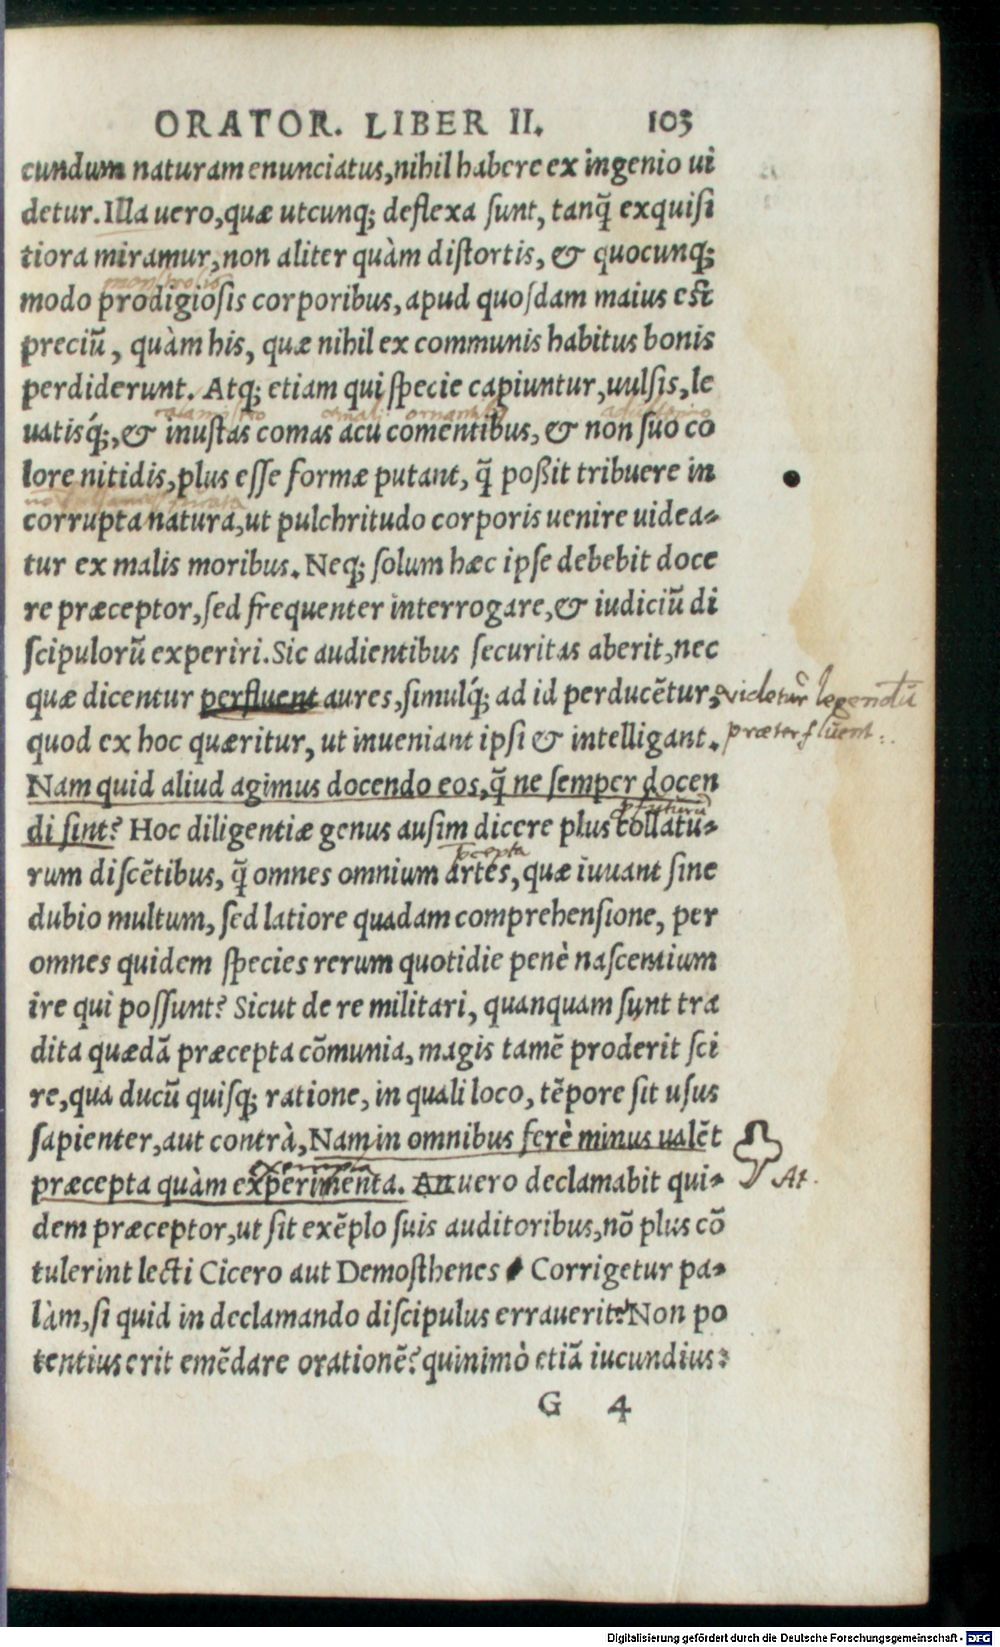 ORATOR. LIBER II. 103
cundum naturam enunciatus, nihil habere ex ingenio ui
detur. Illa uero, quæ utcunq; deflexa sunt, tanq̃ exquisi
tiora miramur, non aliter quàm distortis, & quocunq;
modo prodigiosis corporibus, apud quosdam maius est
preciũ, quàm his, quæ nihil ex communis habitus bonis
perdiderunt. Atq; etiam qui specie capiuntur, uulsis, le
uatisq́;, & inustas comas acu comentibus, & non suo co
lore nitidis, plus esse formæ putant, q̃ poßit tribuere in
corrupta natura, ut pulchritudo corporis uenire uidea-
tur ex malis moribus. Neq; solum hæc ipse debebit doce
re præceptor, sed frequenter interrogare, & iudiciũ di
scipulorũ experiri. Sic audientibus securitas aberit, nec
quæ dicentur perfluent aures, simulq́; ad id perducẽtur, videtur legendũ
quod ex hoc quæritur, ut inueniant ipsi & intelligant. præterfluent.
Nam quid aliud agimus docendo eos, q̃ ne semper docen
di sint? Hoc diligentiæ genus ausim dicere plus collatu-
rum discẽtibus, q̃ omnes omnium artes, quæ iuuant sine
dubio multum, sed latiore quadam comprehensione, per
omnes quidem species rerum quotidie penè nascentium
ire qui possunt? Sicut de re militari, quanquam sunt tra
dita quædã præcepta cõmunia, magis tamẽ proderit sci
re, qua ducũ quisq; ratione, in quali loco, tẽpore sit usus
sapienter, aut contrà, Nam in omnibus ferè minus ualẽt
exempla
præcepta quàm experimenta. An uero declamabit qui- At.
dem præceptor, ut sit exẽplo suis auditoribus, nõ plus cõ
tulerint lecti Cicero aut Demosthenes? Corrigetur pa-
làm, si quid in declamando discipulus errauerit? Non po
tentius erit emẽdare orationẽ? quinimò etiã iucundius:
G 4
Digitalisierung gefördert durch die Deutsche Forschungsgemeinschaft - DFG